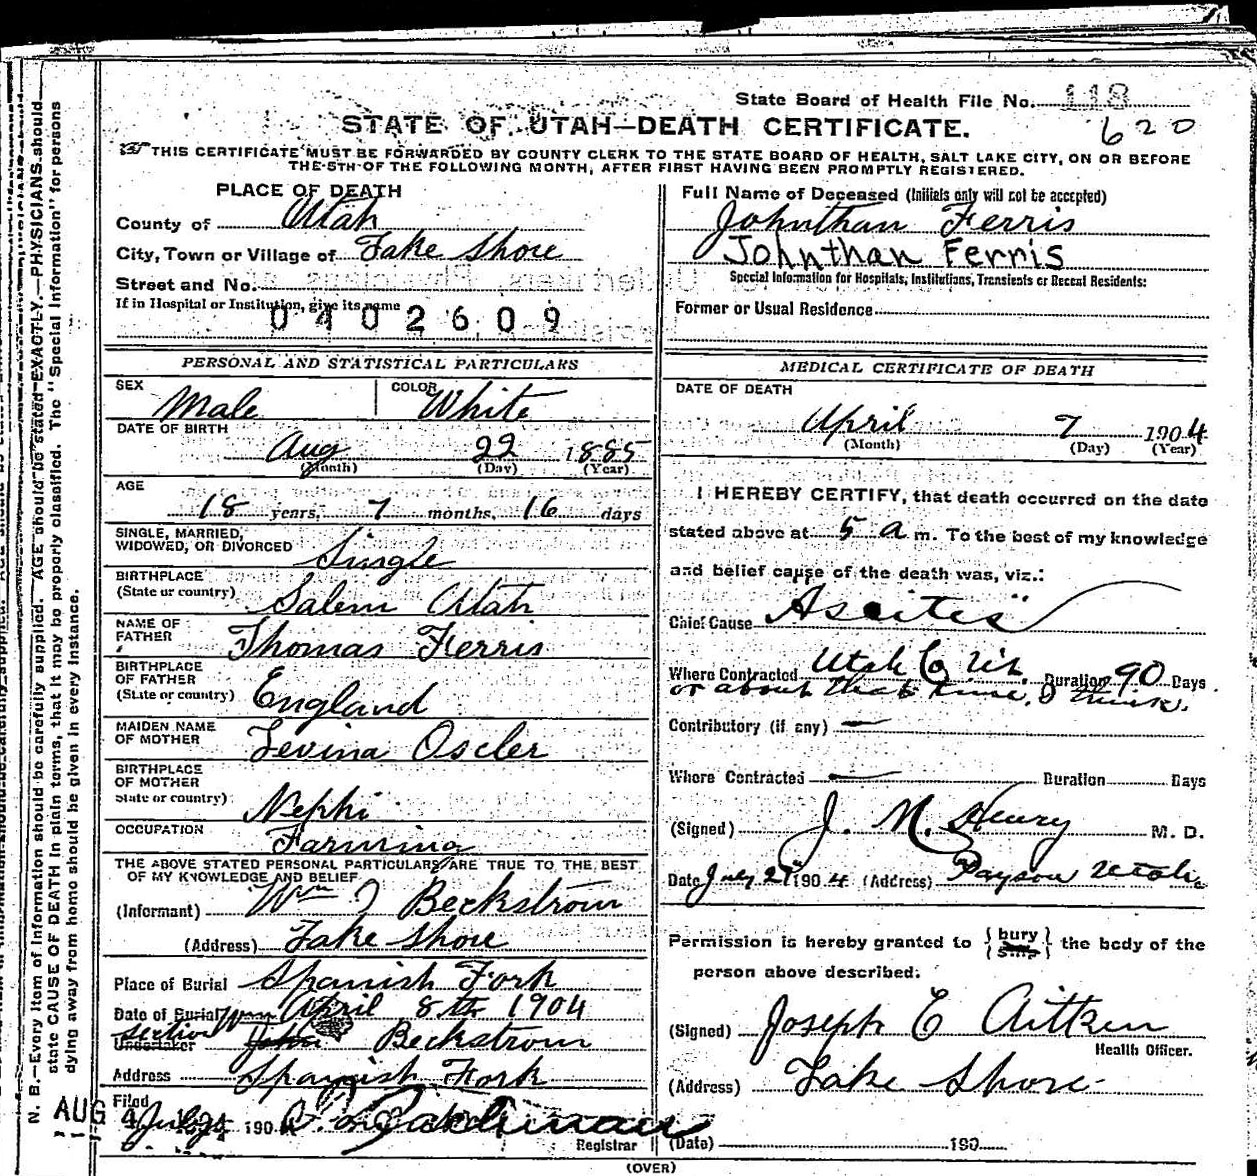 State Board of Health File No. 118
620
STATE OF UTAH—DEATH CERTIFICATE.
THIS CERTIFICATE MUST BE FORWARDED BY COUNTY CLERK TO THE STATE BOARD OF HEALTH, SALT LAKE CITY, ON OR BEFORE
THE 5TH OF THE FOLLOWING MONTH, AFTER FIRST HAVING BEEN PROMPTLY REGISTERED.
PLACE OF DEATH
County of Utah
City, Town or Village of Lake Shore
Street and No.
If in Hospital or Institution, give its name
0402609
Full Name of Deceased (Initials only will not be accepted)
Johnthan Ferris
Johnthan Ferris
Special Information for Hospitals, Institutions, Transients or Recent Residents:
Former or Usual Residence
PERSONAL AND STATISTICAL PARTICULARS
SEX Male COLOR White
DATE OF BIRTH
Aug 22 1885
(Month) (Day) (Year)
AGE
18 years, 7 months, 16 days
SINGLE, MARRIED,
WIDOWED, OR DIVORCED Single
BIRTHPLACE
(State or country) Salem Utah
NAME OF
FATHER Thomas Ferris
BIRTHPLACE
OF FATHER
(State or country) England
MAIDEN NAME
OF MOTHER Levina Oscler
BIRTHPLACE
OF MOTHER
State or country) Nephi
OCCUPATION Farming
THE ABOVE STATED PERSONAL PARTICULARS ARE TRUE TO THE BEST
OF MY KNOWLEDGE AND BELIEF
(Informant) Wm Beckstrom
(Address) Lake Shore
Place of Burial Spanish Fork
Date of Burial April 8th 1904
section Wm
Undertaker John Beckstrom
Address Spanish Fork
Filed
AUG 4 July 190
Registrar
MEDICAL CERTIFICATE OF DEATH
DATE OF DEATH
April 7 1904
(Month) (Day) (Year)
I HEREBY CERTIFY, that death occurred on the date
stated above at 5 a m. To the best of my knowledge
and belief cause of the death was, viz.:
Chief Cause Ascites
Where Contracted Utah Co Ut. Duration 90 Days
or about that time, I think.
Contributory (if any) —
Where Contracted — Duration Days
(Signed) J. M. Henry M. D.
Date July 27 1904 (Address) Payson Utah
Permission is hereby granted to { bury ship } the body of the
person above described.
(Signed) Joseph E Aitken
Health Officer.
(Address) Lake Shore
(Date) 190
(OVER)
N. B.—Every item of information should be carefully supplied. AGE should be stated EXACTLY.—PHYSICIANS should
state CAUSE OF DEATH in plain terms, that it may be properly classified. The "Special Information" for persons
dying away from home should be given in every instance.